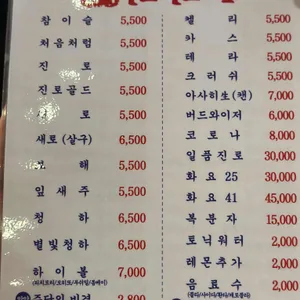 참이슬 5,500
처음처럼 5,500
진로 5,500
진로골드 5,500
로 5,500
새로(살구) 6,500
해 5,500
잎새주 5,500
청하 6,500
별빛청하 6,500
하이볼 7,000
2,800
켈리 5,500
카스 5,500
테라 5,500
크러쉬 5,500
아사히生(캔) 7,000
버드와이저 6,000
코로나 8,000
일품진로 30,000
화요25 30,000
화요41 45,000
복분자 15,000
토닉워터 2,000
레몬추가 2,000
음료수 2,000